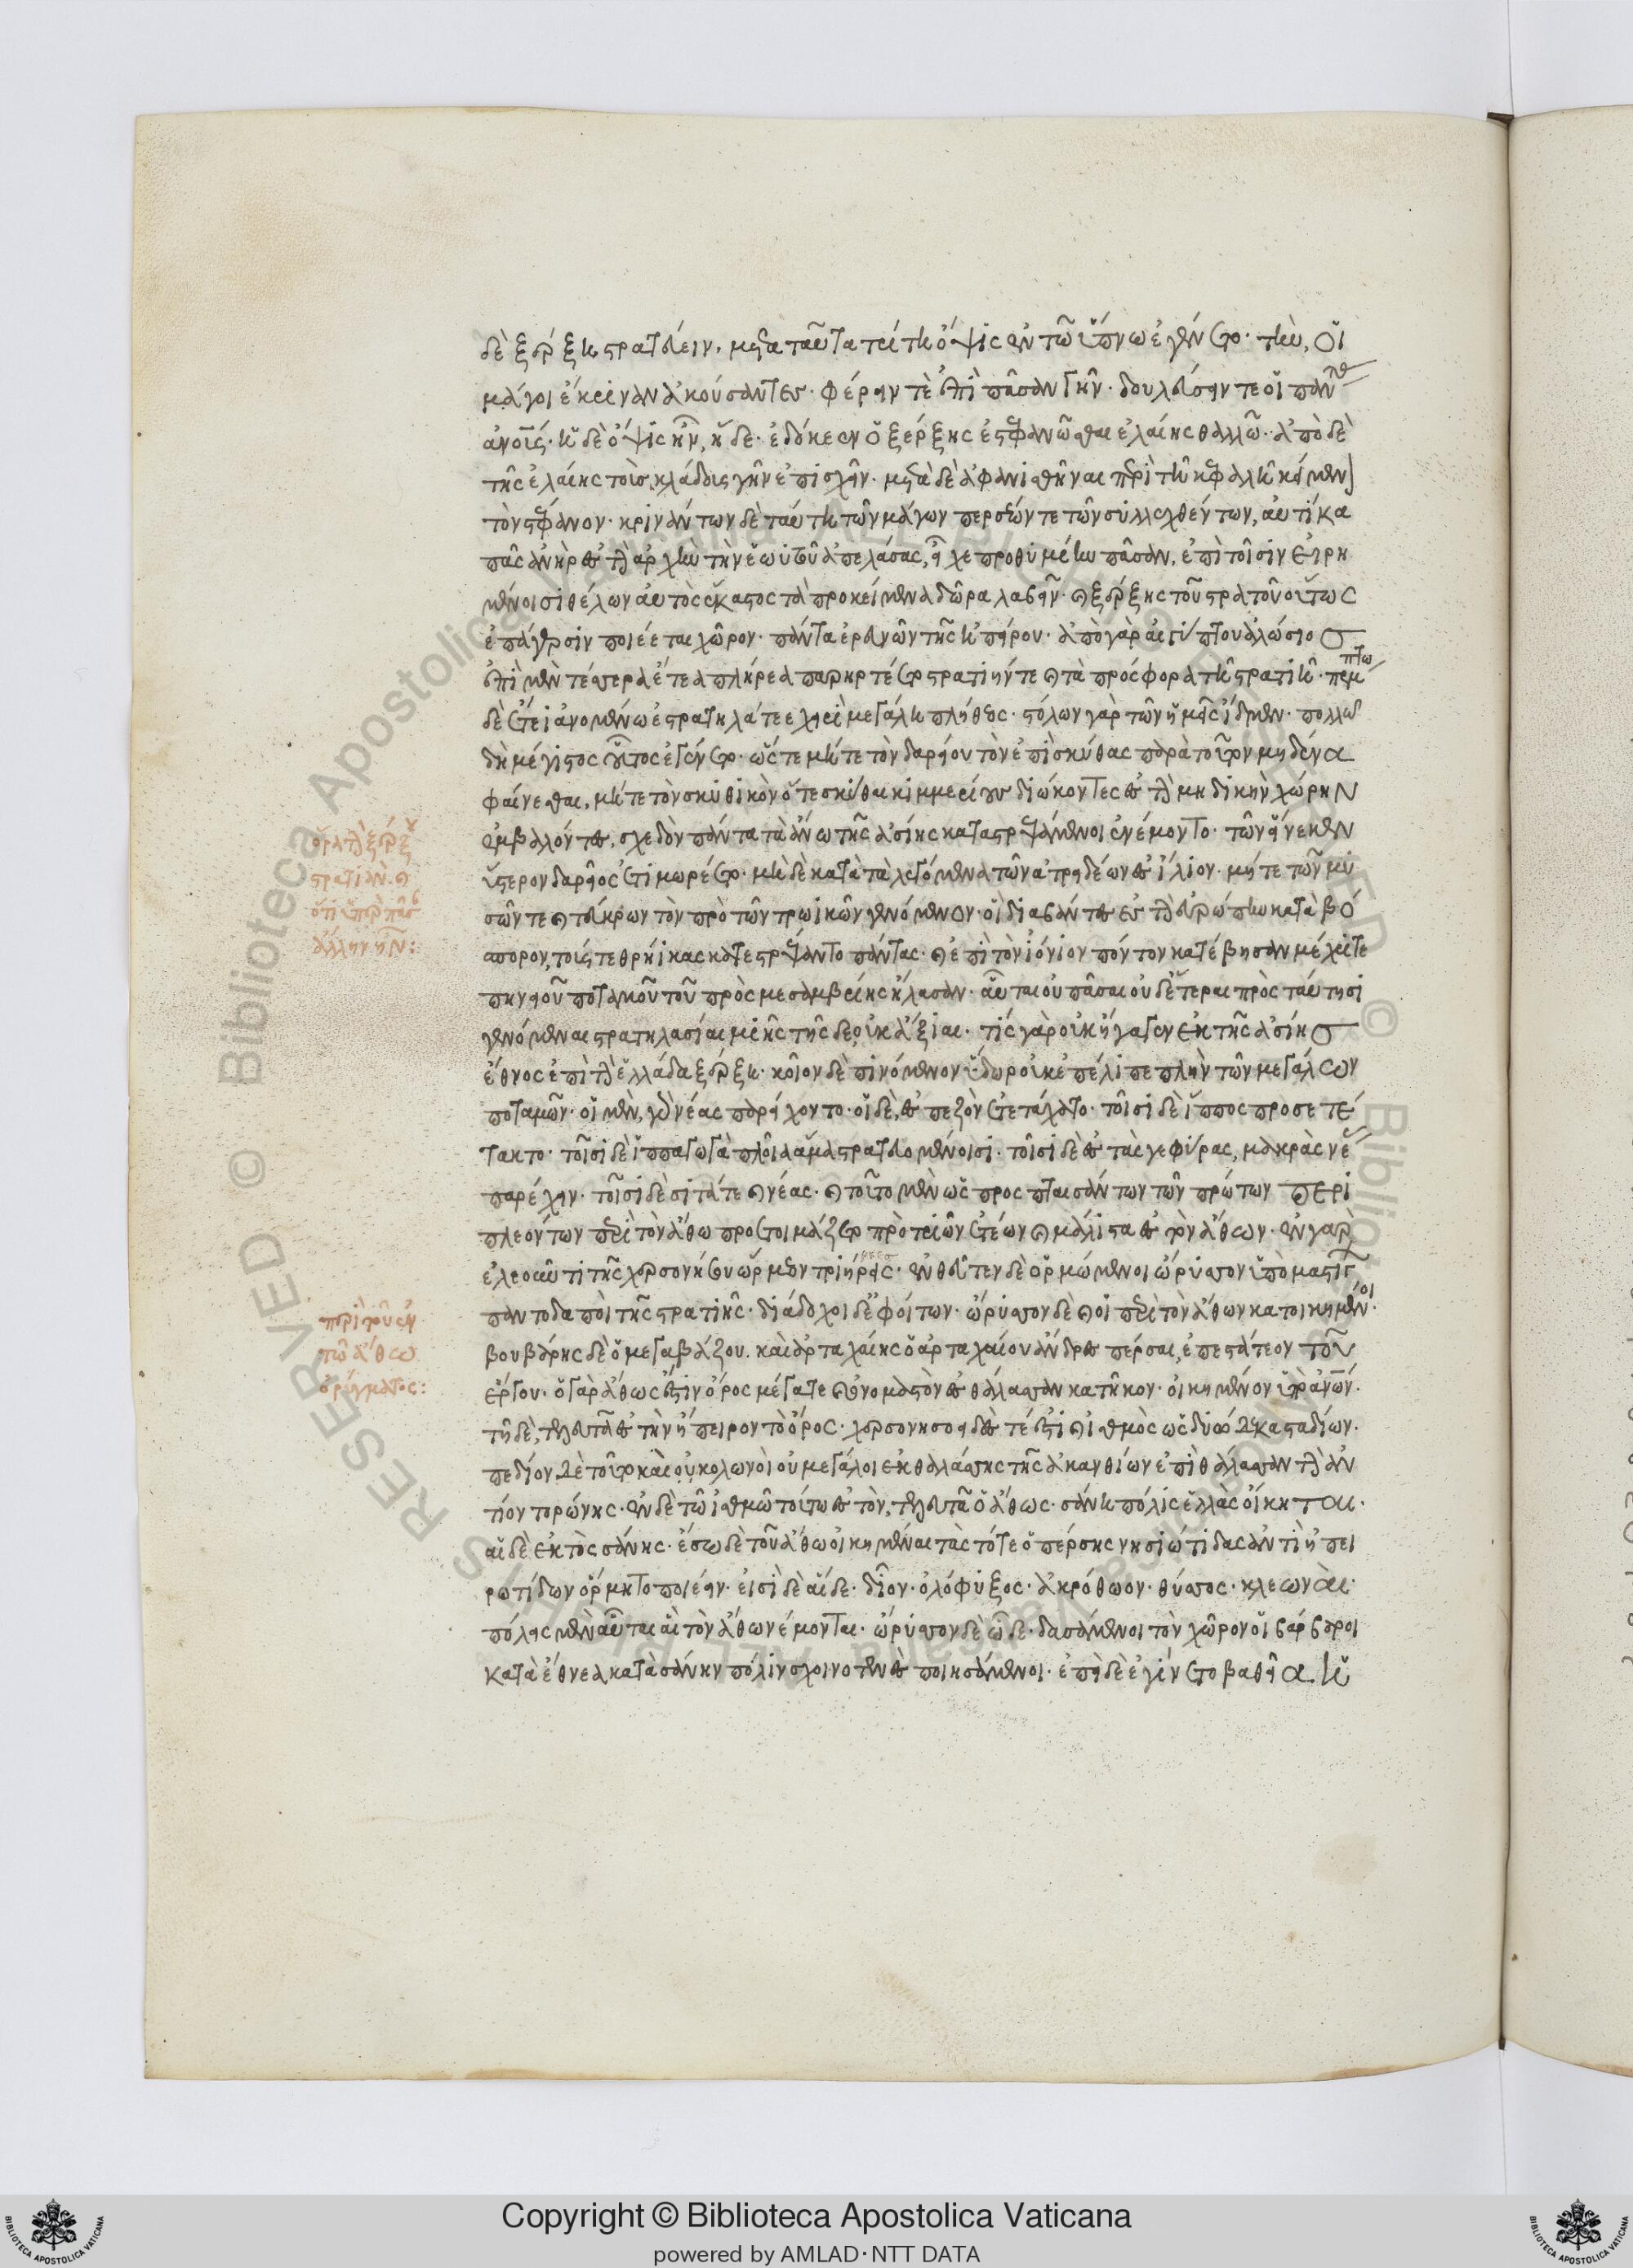 δὲ ξέρξη στρατηλατέειν. μετὰ ταῦτα τρίτη ὄψις ἐν τῶ ὕπνω ἐγένετο. τὴν, οἱ
μάγοι ἔκριναν ἀκούσαντες. φέρειν τὲ ἐπὶ πᾶσαν γῆν. δουλεύσειν τε οἱ πάντας
ἀνους. ἡ δὲ ὄψις ἦν, ἥδε. ἐδόκεεν ὁ ξέρξης ἐστεφανῶσθαι ἐλαίης θαλλῶ. ἀπὸ δὲ
τῆς ἐλαίης τοὺς κλάδους γῆν ἐπισχεῖν. μετὰ δὲ ἀφανισθῆναι περὶ τῆ κεφαλῆ κείμενον
τὸν στέφανον. κρινάντων δὲ ταύτη τῶν μάγων περσέων τε τῶν συλλεχθέντων, αὐτίκα
πᾶς ἀνὴρ ἐς τὴν ἀρχὴν τὴν ἑωυτοῦ ἀπελάσας, εἶχε προθυμίην πᾶσαν, ἐπὶ τοῖσιν εἰρη
μένοισι θέλων αὐτὸς ἕκαστος τὰ προκείμενα δῶρα λαβεῖν. καὶ ξέρξης τοῦ στρατοῦ οὕτως
ἐπάγερσιν ποιέεται χῶρον. πάντα ἐρευνῶν τῆς ἠπείρου. ἀπὸ γὰρ αἰγύπτου ἁλώσιος
ἐπὶ μὲν τέσσερα ἔτεα πλήρεα παραρτέετο στρατιήν τε καὶ τὰ πρόσφορα τῆ στρατιῆ. πέμπτω
δὲ ἔτεϊ ἀνομένω ἐστρατηλάτεε χειρὶ μεγάλη πλήθεος. στόλων γὰρ τῶν ἡμεῖς ἴδμεν. πολλῶ
δὴ μέγιστος οὗτος ἐγένετο. ὥστε μήτε τὸν δαρείου τὸν ἐπὶ σκύθας παρὰ τοῦτον μηδένα
φαίνεσθαι, μήτε τὸν σκυθικὸν ὅτε σκύθαι κιμμερίους διώκοντες ἐς τὴν μηδικὴν χώρην
ἐμβαλόντες, σχεδὸν πάντα τὰ ἄνω τῆς ἀσίης καταστρεψάμενοι ἐνέμοντο. τῶν εἵνεκεν
ὕστερον δαρεῖος ἐτιμωρέετο. μὴ δὲ κατὰ τὰ λεγόμενα τῶν ἀτρειδέων ἐς ἴλιον. μήτε τῶν μυ
σῶν τε καὶ τευκρων τὸν πρὸ τῶν τρωικῶν γενόμενον. οἳ διαβάντες ἐς τὴν εὐρώπην κατὰ βό
σπορον, τούς τε θρήικας κατεστρέψαντο πάντας. καὶ ἐπὶ τὸν ἰόνιον πόντον κατέβησαν μέχρι τε
πηνειοῦ ποταμοῦ τοῦ πρὸς μεσαμβρίης ἤλασαν. αὗται οὐ πᾶσαι οὐδ' ἕτεραι πρὸς ταύτησι
γενόμεναι στρατηλασίαι μιῆς τῆς δε οὐκ ἄξιαι. τί γὰρ οὐκ ἤγαγεν ἐκ τῆς ἀσίης
ἔθνος ἐπὶ τὴν ἑλλάδα ξέρξη. κοῖον δὲ πινόμενον ὕδωρ οὐκ ἐπέλιπε πλὴν τῶν μεγάλων
ποταμῶν. οἱ μὲν, γὰρ νέας παρείχοντο. οἱ δὲ, ἐς πεζὸν ἐτετάχατο. τοῖσι δὲ ἵππος προσετέ
τακτο. τοῖσι δὲ ἱππαγωγὰ πλοῖα ἅμα στρατευομένοισι. τοῖσι δὲ ἐς τὰς γεφύρας, μακρὰς νέας
παρέχειν. τοῖσι δὲ σῖτά τε καὶ νέας. καὶ τοῦτο μὲν ὡς προσπταισάντων τῶν πρώτων περι
πλεόντων περὶ τὸν ἄθω προετοιμάζετο πρὸ τριῶν ἐτέων καὶ μάλιστα ἐς τὸν ἄθων. ἐν γὰρ
ἐλεοῦντι τῆς χερσονήσου ὥρμεον τριήρεις. ἐνθεῦτεν δὲ ὁρμώμενοι ὤρυσσον ὑπὸ μαστίγων
παντοδαποὶ τῆς στρατιῆς. διάδοχοι δ' ἐφοίτων. ὤρυσσον δὲ καὶ οἱ περὶ τὸν ἄθων κατοικημένοι.
βουβάρης δὲ ὁ μεγαβάζου. καὶ ἀρταχαίης ὁ ἀρταχαίου ἄνδρες πέρσαι, ἐπεστάτεον τοῦ
ἔργου. ὁ γὰρ ἄθως ἐστὶν ὄρος μέγα τε καὶ ὀνομαστὸν ἐς θάλασσαν κατῆκον. οἰκημένον ὑπὸ ἀνων.
τῆ δὲ, τελευτᾶ ἐς τὴν ἤπειρον τὸ ὄρος. χερσονησοειδές τέ ἐστι καὶ ἰσθμὸς ὡς δυώδεκα σταδίων.
πεδίον δὲ τοῦτο καὶ οὐ κολωνοὶ οὐ μεγάλοι ἐκ θαλάσσης τῆς ἀκανθίων ἐπὶ θάλασσαν τὴν ἀν
τίον τορώνης. ἐν δὲ τῶ ἰσθμῶ τούτω ἐς τὸν, τελευτᾶ ὁ ἄθως. σάνη πόλις ἑλλὰς οἴκηται.
αἱ δὲ ἐκτὸς σάνης. ἔσω δὲ τοῦ ἄθω οἰκημέναι τὰς τότε ὁ πέρσης νησιώτιδας ἀντὶ ἠπει
ρωτίδων ὅρμητο ποιέειν. εἰσὶ δὲ αἵδε. δῖον. ὀλόφυξος. ἀκρόθωον. θύσσος. κλεωναί.
πόλεις μὲν αὗται αἳ τὸν ἄθων νέμονται. ὤρυσσον δὲ ὧδε. δασάμενοι τὸν χῶρον οἱ βάρβαροι
κατὰ ἔθνεα κατὰ σάνην πόλιν σχοινοτενὲς ποιησάμενοι. ἐπεὶ δὲ ἐγίνετο βαθεῖα. ἡ
περὶ τοῦ ἐν
τῶ ἄθω
ὀρύγματος: